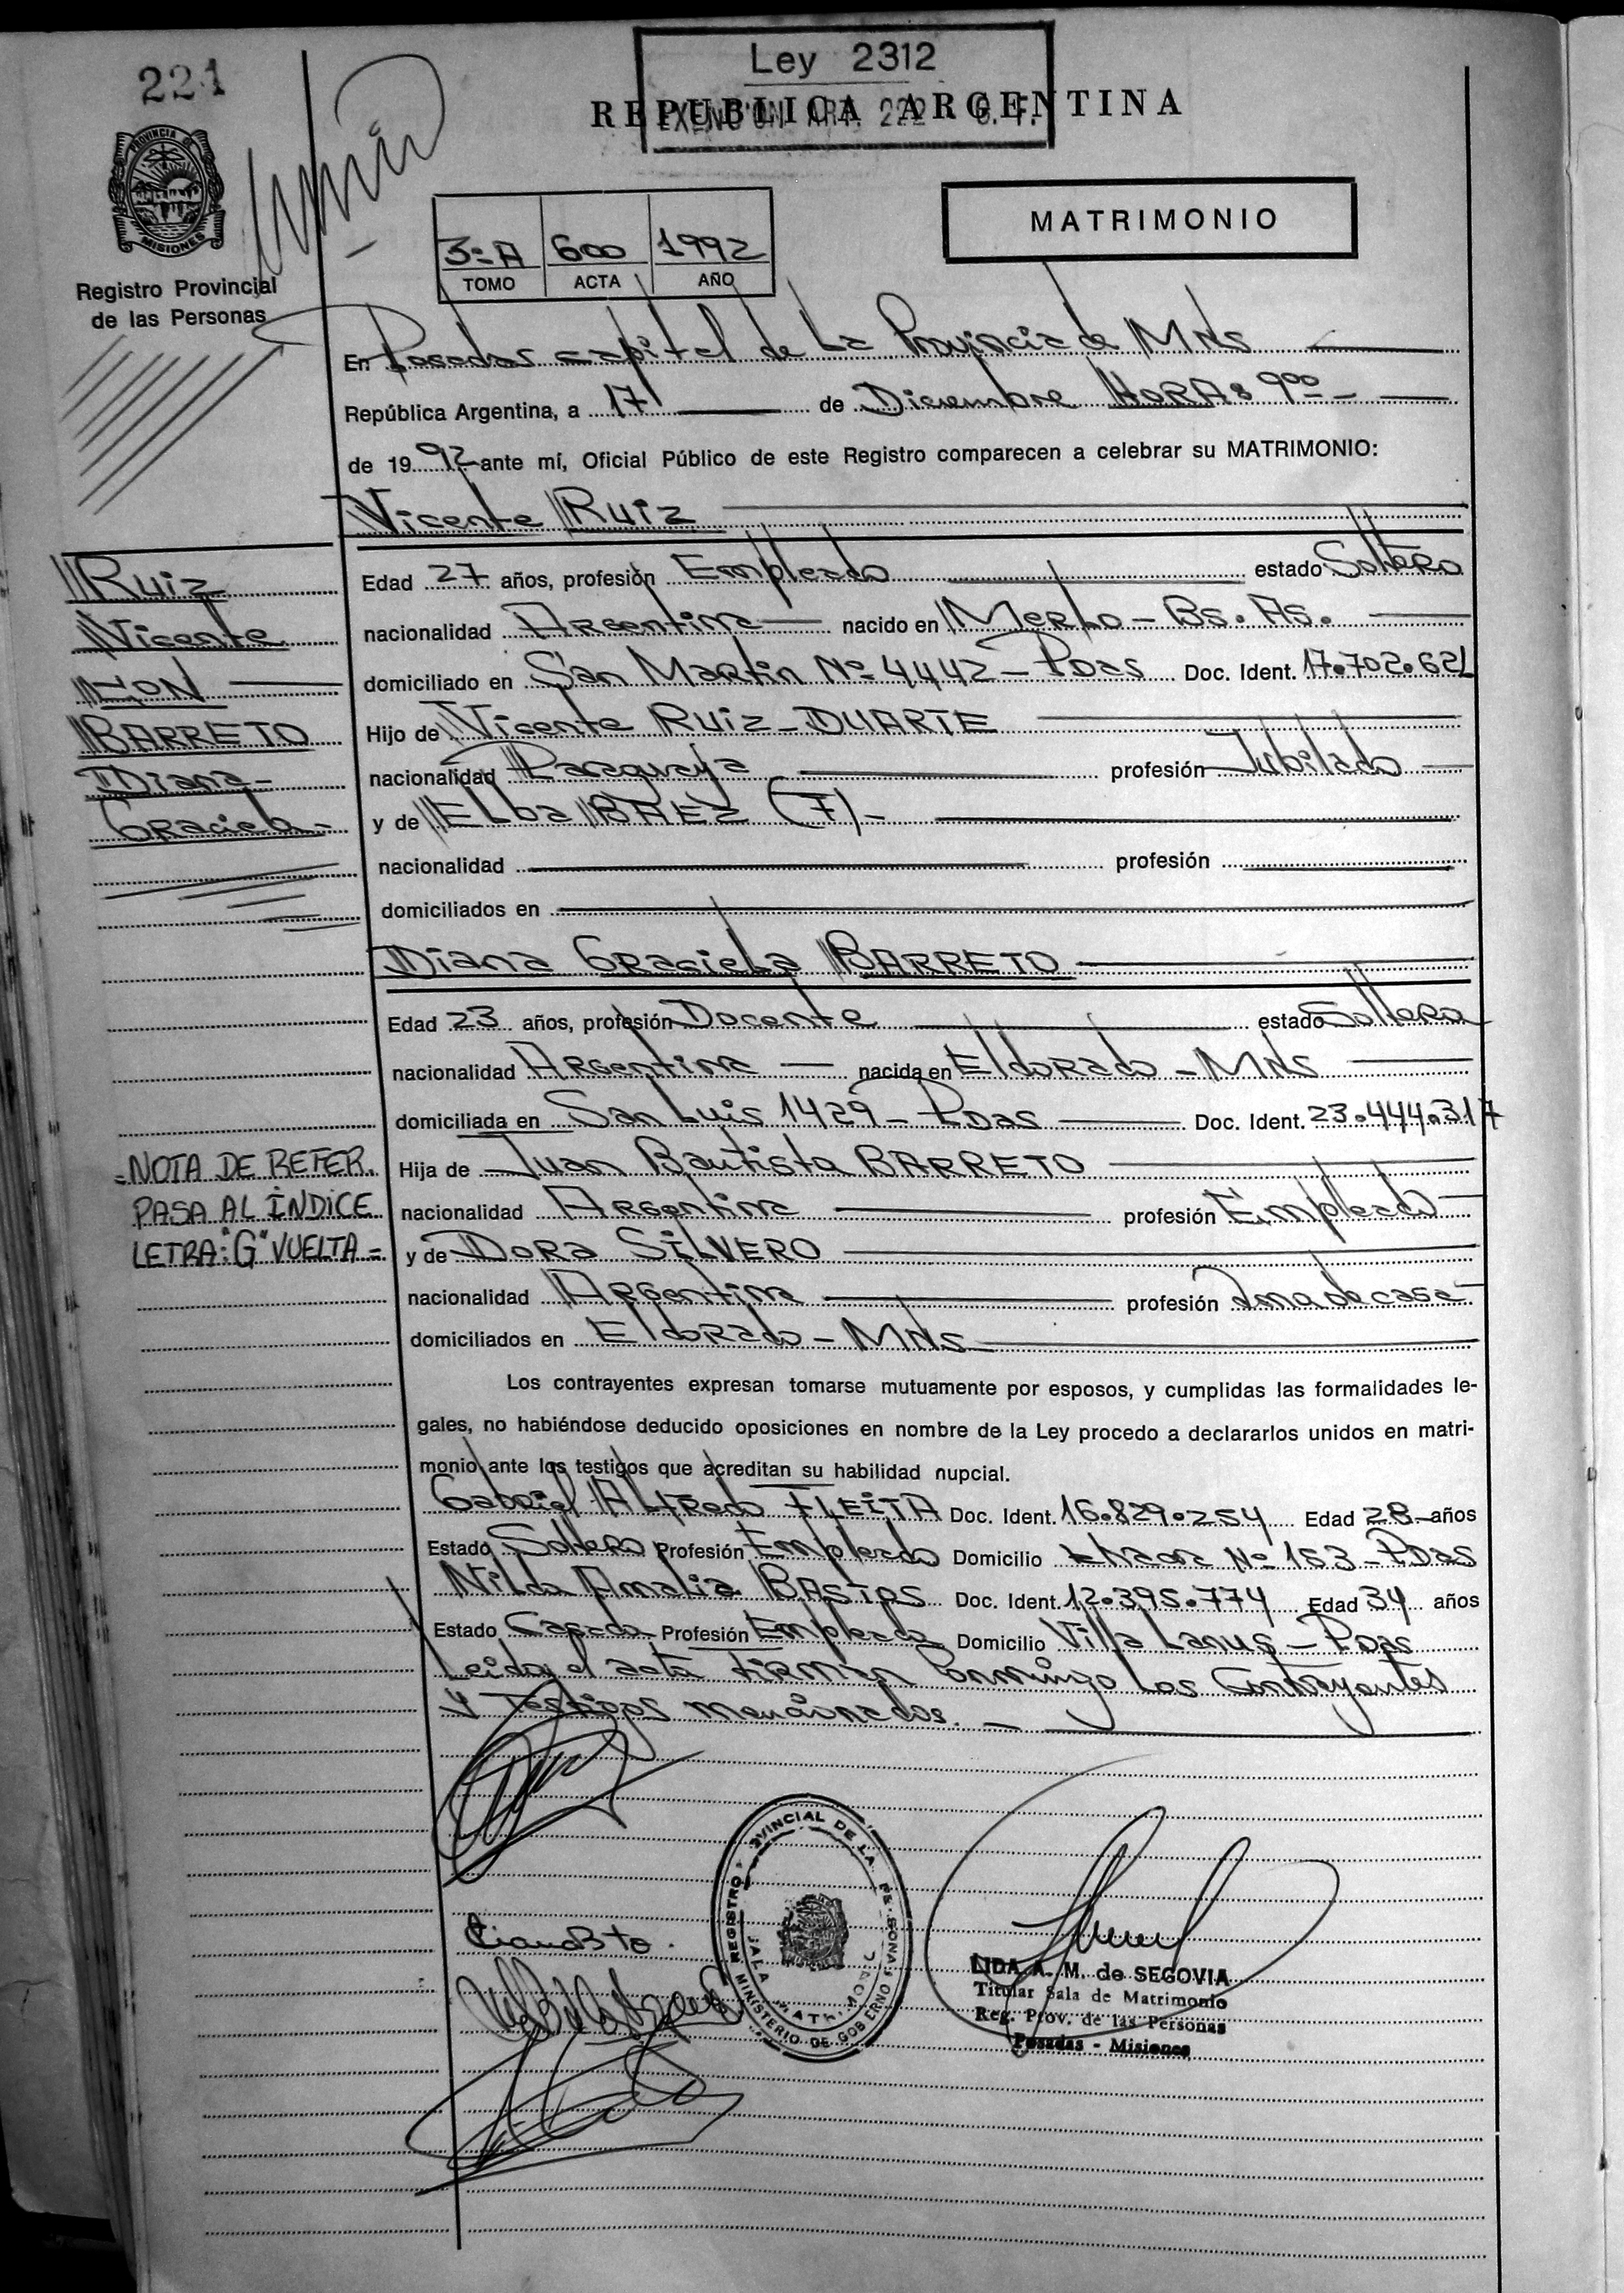 221
Ley 2312
EXENCION ART. 222 C. F.
REPUBLICA ARGENTINA
PROVINCIA DE
MISIONES
Registro Provincial
de las Personas
3º A 600 1992
TOMO ACTA AÑO
MATRIMONIO
En Posadas capital de La Provincia de Mns
República Argentina, a 17 de Diciembre HORAS 900
de 1992 ante mí, Oficial Público de este Registro comparecen a celebrar su MATRIMONIO:
Vicente Ruiz
Ruiz
Vicente
CON
BARRETO
Diana
Graciela
Edad 27 años, profesión Empleado estado Soltero
nacionalidad Argentina nacido en Merlo - Bs. As.
domiciliado en San Martin Nº 4442 - Pdas Doc. Ident. 17.702.621
Hijo de Vicente Ruiz - DUARTE
nacionalidad Paraguaya profesión Jubilado
y de Elba BAEZ (F) -
nacionalidad profesión
domiciliados en
Diana Graciela BARRETO
Edad 23 años, profesión Docente estado Soltera
nacionalidad Argentina nacida en Eldorado - Mns
domiciliada en San Luis 1429 - Pdas Doc. Ident. 23.444.317
Hija de Juan Bautista BARRETO
nacionalidad Argentina profesión Empleado
y de Dora SILVERO
nacionalidad Argentina profesión Ama de casa
domiciliados en Eldorado - Mns
=NOTA DE REFER.
PASA AL ÍNDICE
LETRA: "G" VUELTA =
Los contrayentes expresan tomarse mutuamente por esposos, y cumplidas las formalidades le-
gales, no habiéndose deducido oposiciones en nombre de la Ley procedo a declararlos unidos en matri-
monio ante los testigos que acreditan su habilidad nupcial.
Gabriel Alfredo FLEITA Doc. Ident. 16.829.254 Edad 28 años
Estado Soltero Profesión Empleado Domicilio Nº 153 - Pdas
Nilda Amalia BASTOS Doc. Ident. 12.395.774 Edad 34 años
Estado Casada Profesión Empleada Domicilio Villa Lanus - Pdas
Leida el acta Firman Conmigo Los Contrayentes
y Testigos mencionados.
REGISTRO PROVINCIAL DE LAS PERSONAS
SALA MATRIMONIO
MINISTERIO DE GOBIERNO
LIDA A. M. de SEGOVIA
Titular Sala de Matrimonio
Reg. Prov. de las Personas
Posadas - Misiones